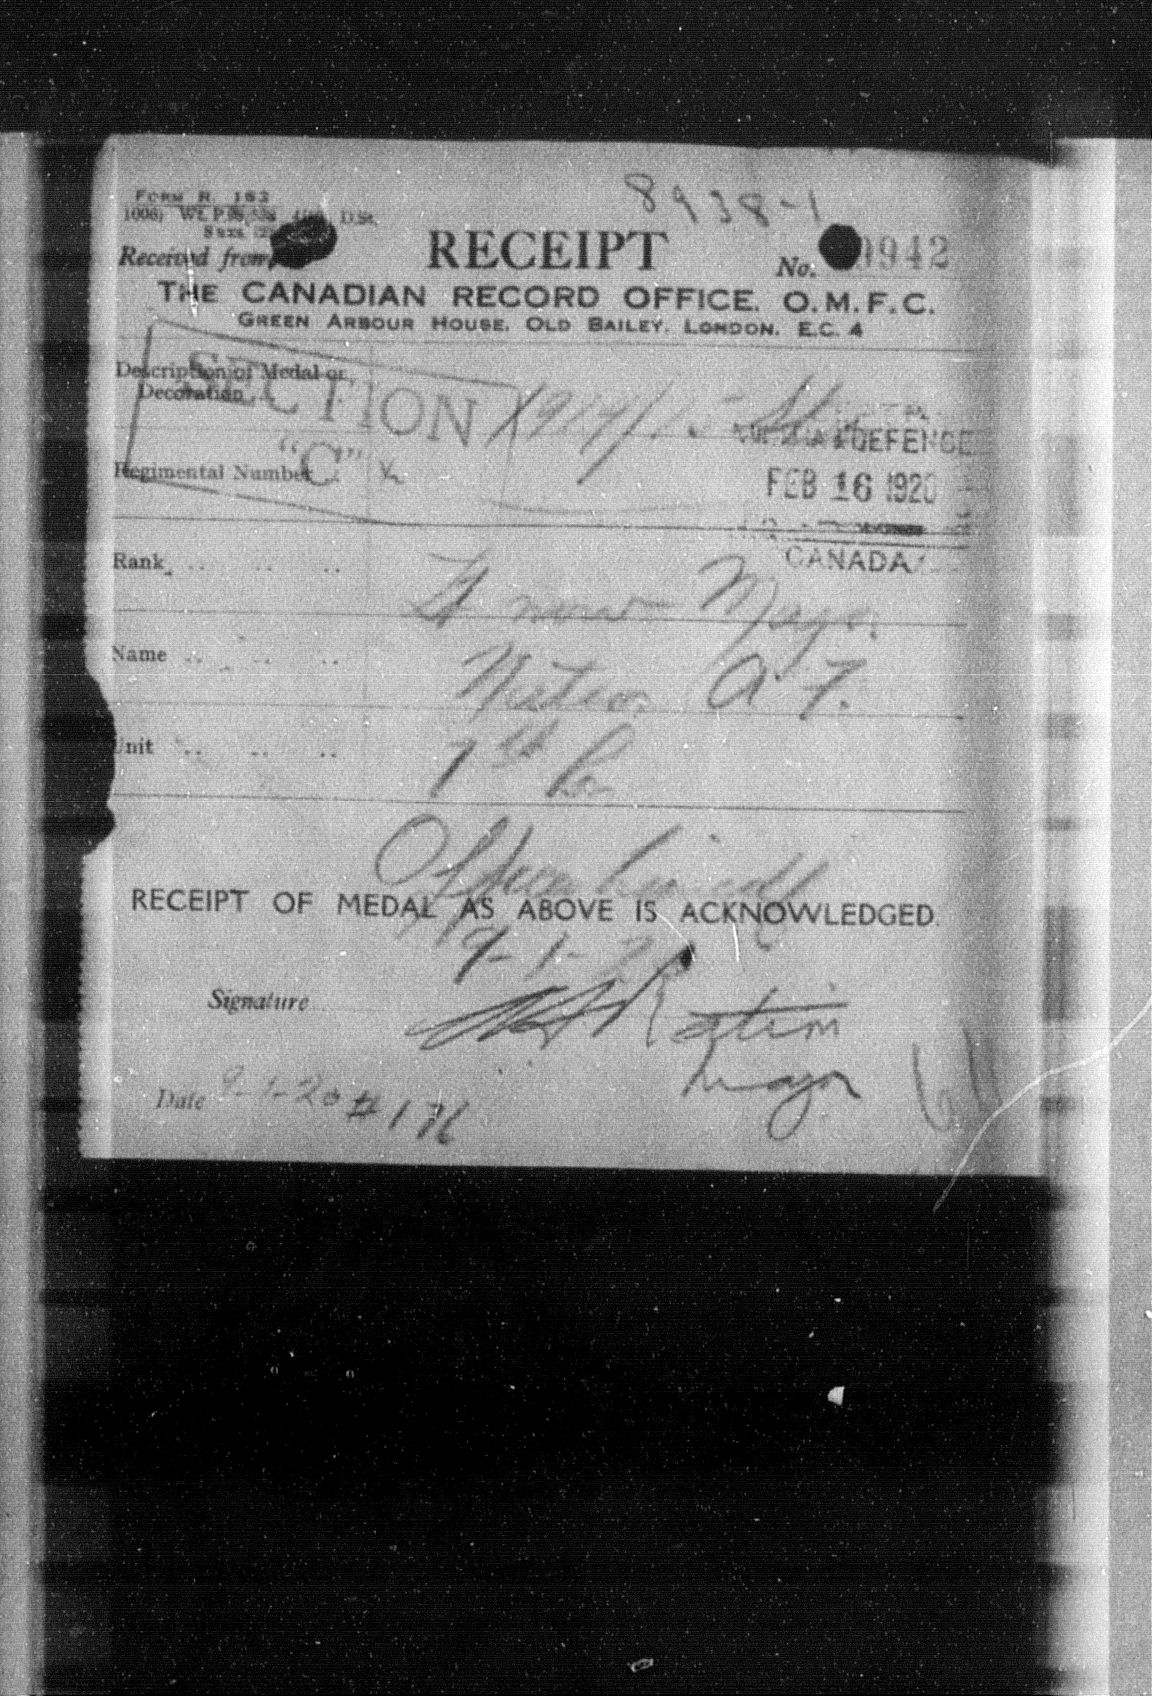 8938-1
FORM R. 152
D.St.
Received from
RECEIPT
No. 9942
THE CANADIAN RECORD OFFICE. O.M.F.C.
GREEN ARBOUR HOUSE, OLD BAILEY, LONDON. E.C. 4
Description of Medal or
Decoration
1914/15 Star
SECTION
"C"
DEFENCE
FEB 16 1920
CANADA
Regimental Number
Rank .. .. ..
Lt now Major
Name .. .. ..
A.
Unit .. .. ..
RECEIPT OF MEDAL AS ABOVE IS ACKNOWLEDGED.
Signature
Major
Date 9-1-20 # 176